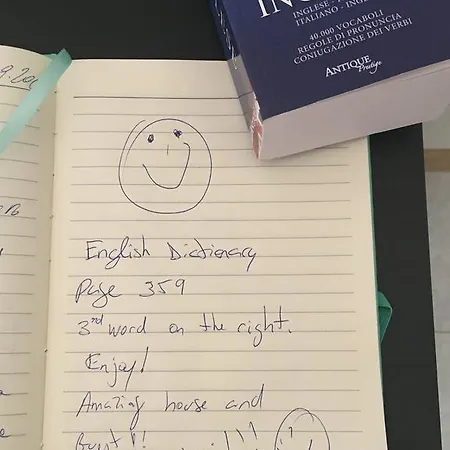 INGLESE -
ITALIANO - INGL
40.000 VOCABOLI
REGOLE DI PRONUNCIA
CONIUGAZIONE DEI VERBI
ANTIQUE
Prestige
English Dictionary
page 359
3rd word on the right.
Enjoy!
Amazing house and